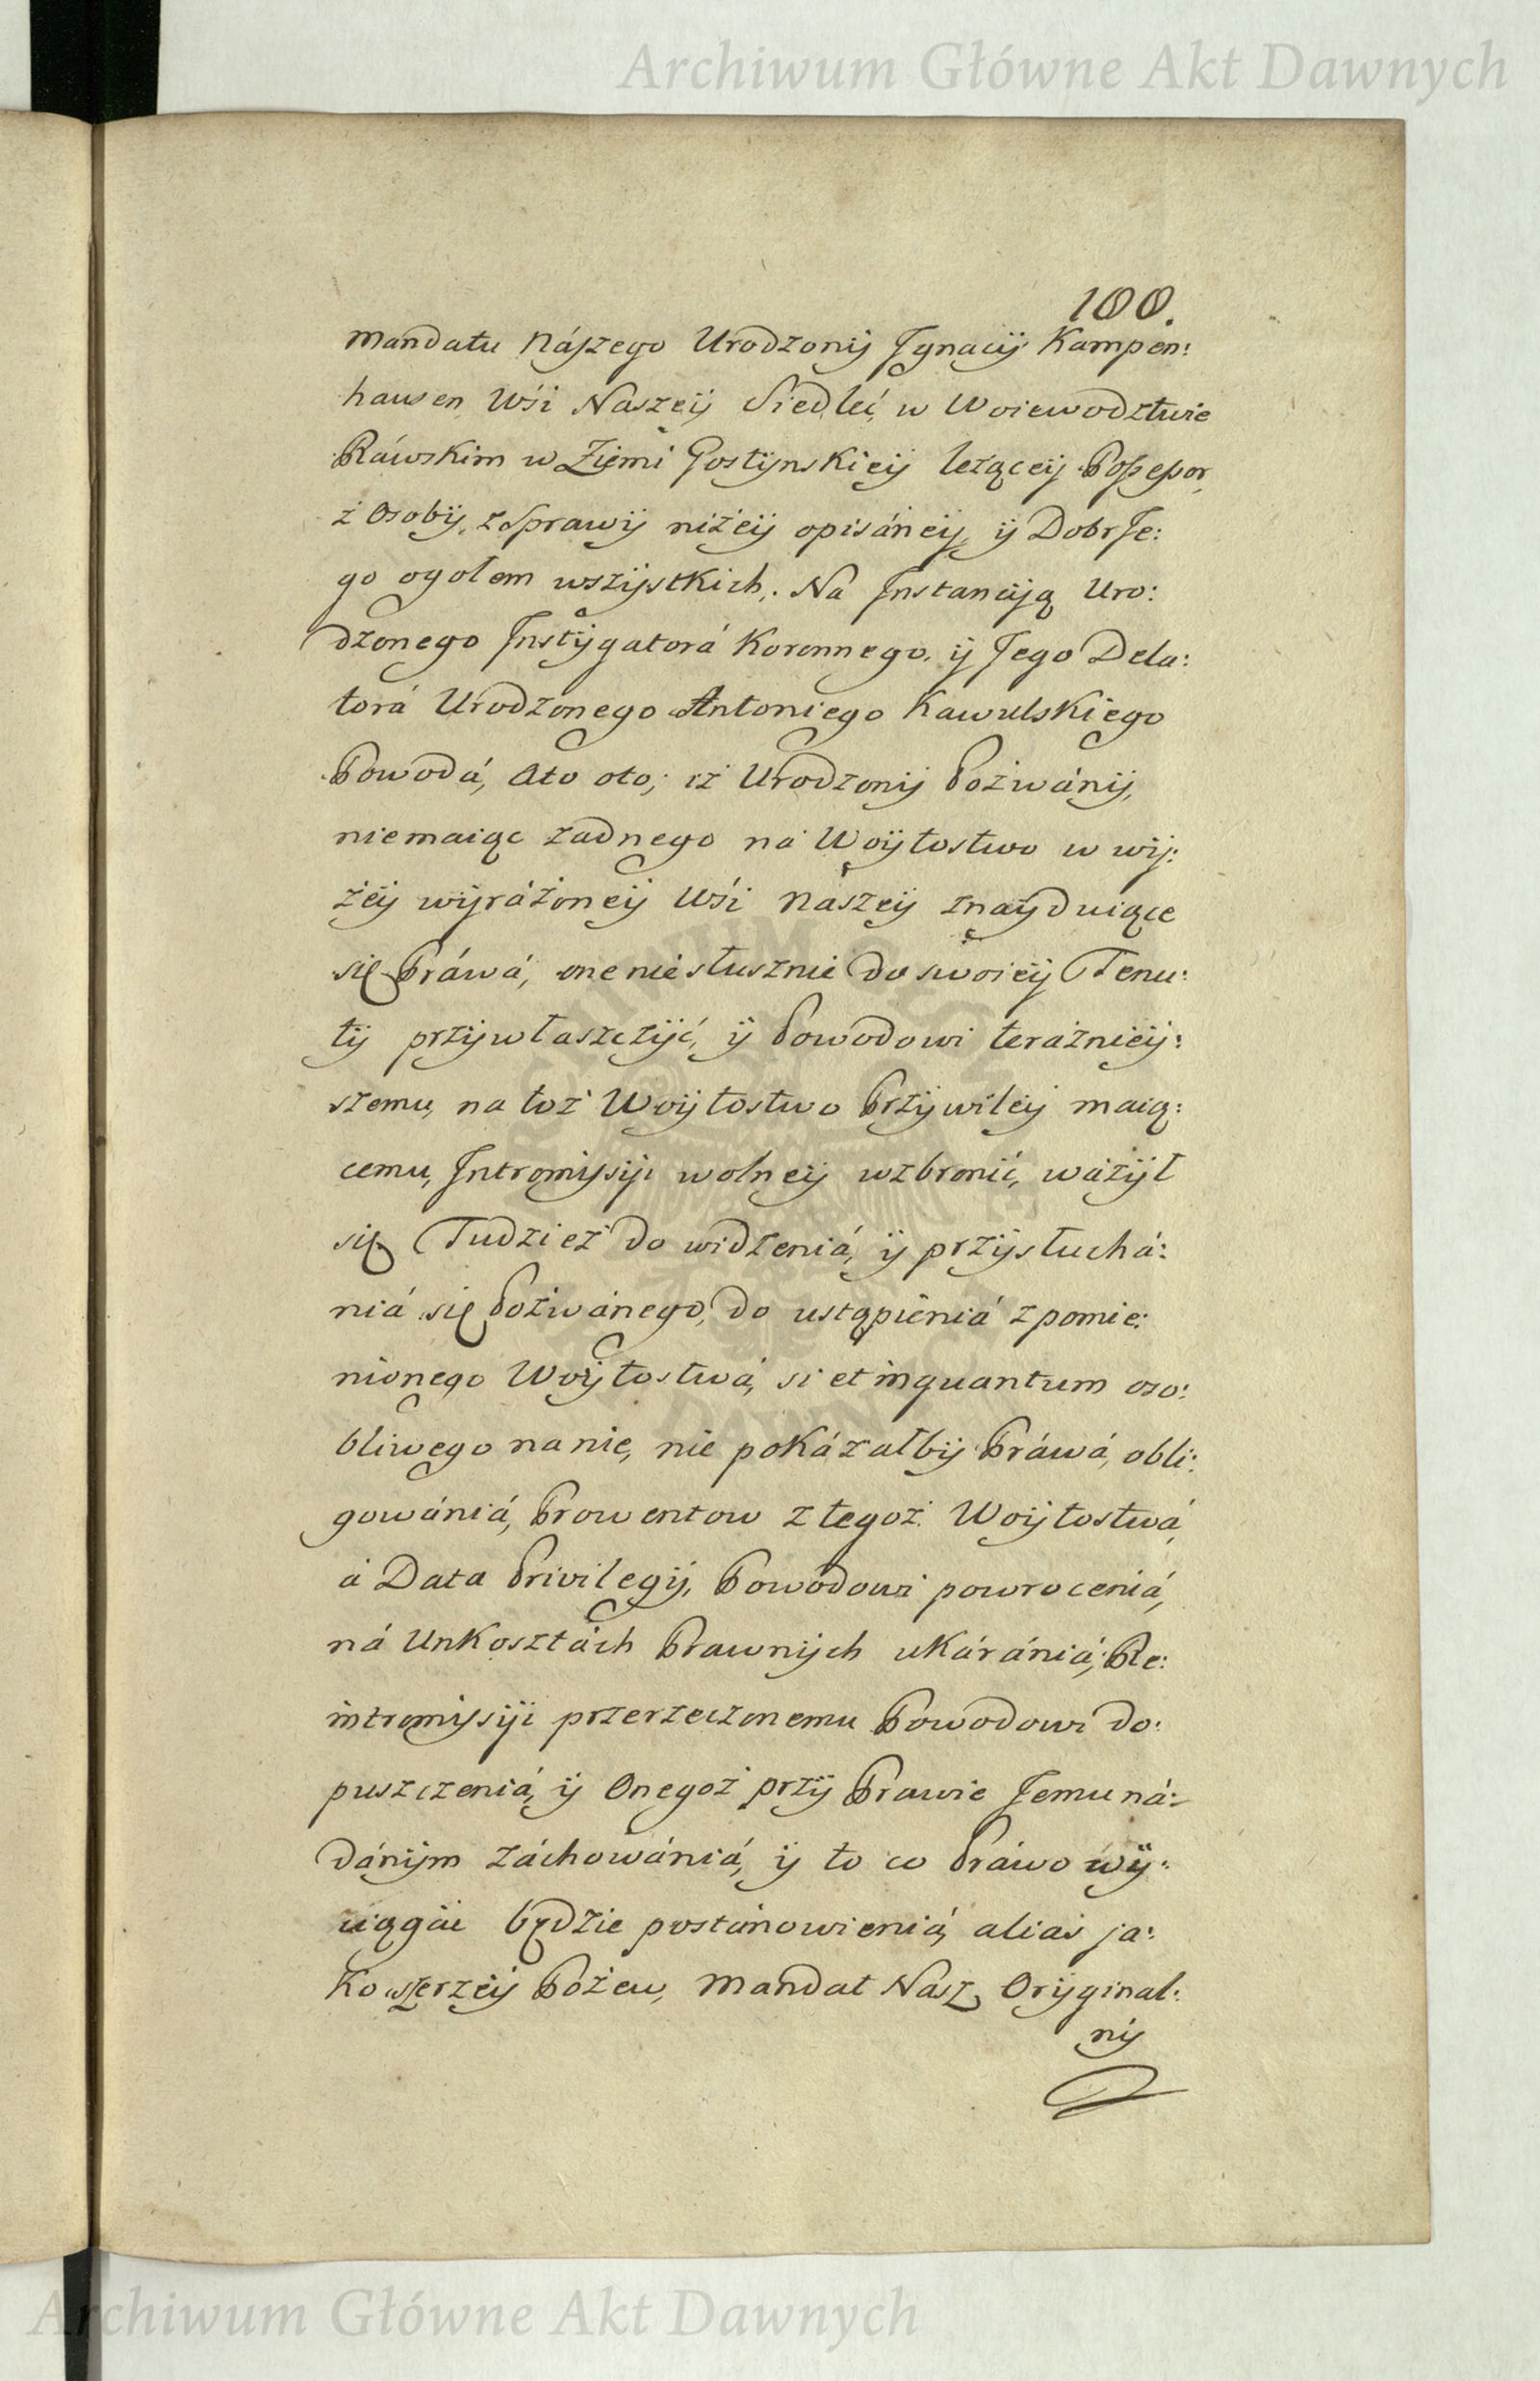 Archiwum Główne Akt Dawnych
100.
Mandatu Nászego Urodzony Jgnacy Kampen:
hausen Wśi Naszey Siedleć, w Woiewodztwie
Ráwskim w Ziemi Gostynskiey leżącey Possessor,
z Osoby, z Sprawy niżey opisáney, y Dobr Je:
go ogołem wszystkich. Na Jnstancyą Uro:
dzonego Jnstygatorá Koronnego, y Jego Dela:
torá Urodzonego Antoniego Kawulskiego
Powodá, Oto oto; iż Urodzony Pozwány,
niemaiąc żadnego ná Woytostwo w wy:
żey wyráżoney Wśi Naszey znayduiące
się Práwá, one niesłusznie do swoiey Tenu:
ty przywłaszczyć, y Powodowi teraźniey:
szemu, na toż Woytostwo Przywiley maią:
cemu, Jntromissyi wolney wzbronić, ważył
się Tudzież do widzeniá, y przysłuchá:
niá się Pozwánego, do ustąpieniá z pomie:
nionego Woytostwá, si et inquantum oso:
bliwego na nie, nie pokázałby Práwá, obli:
gowániá, Prowentow z tegoż Woytostwá,
á Data Privilegij, Powodowi powroceniá,
ná Unkosztách Prawnych ukárániá, Re:
intromissyi przerzeczonemu Powodowi do:
puszczeniá, y Onegoż przy Prawie Jemu ná:
dánym záchowániá, y to co Práwo wy:
ciągáć będzie postánowieniá, aliás ja:
ko szerzey Pozew, Mandat Nasz Oryginal:
ny
Archiwum Główne Akt Dawnych